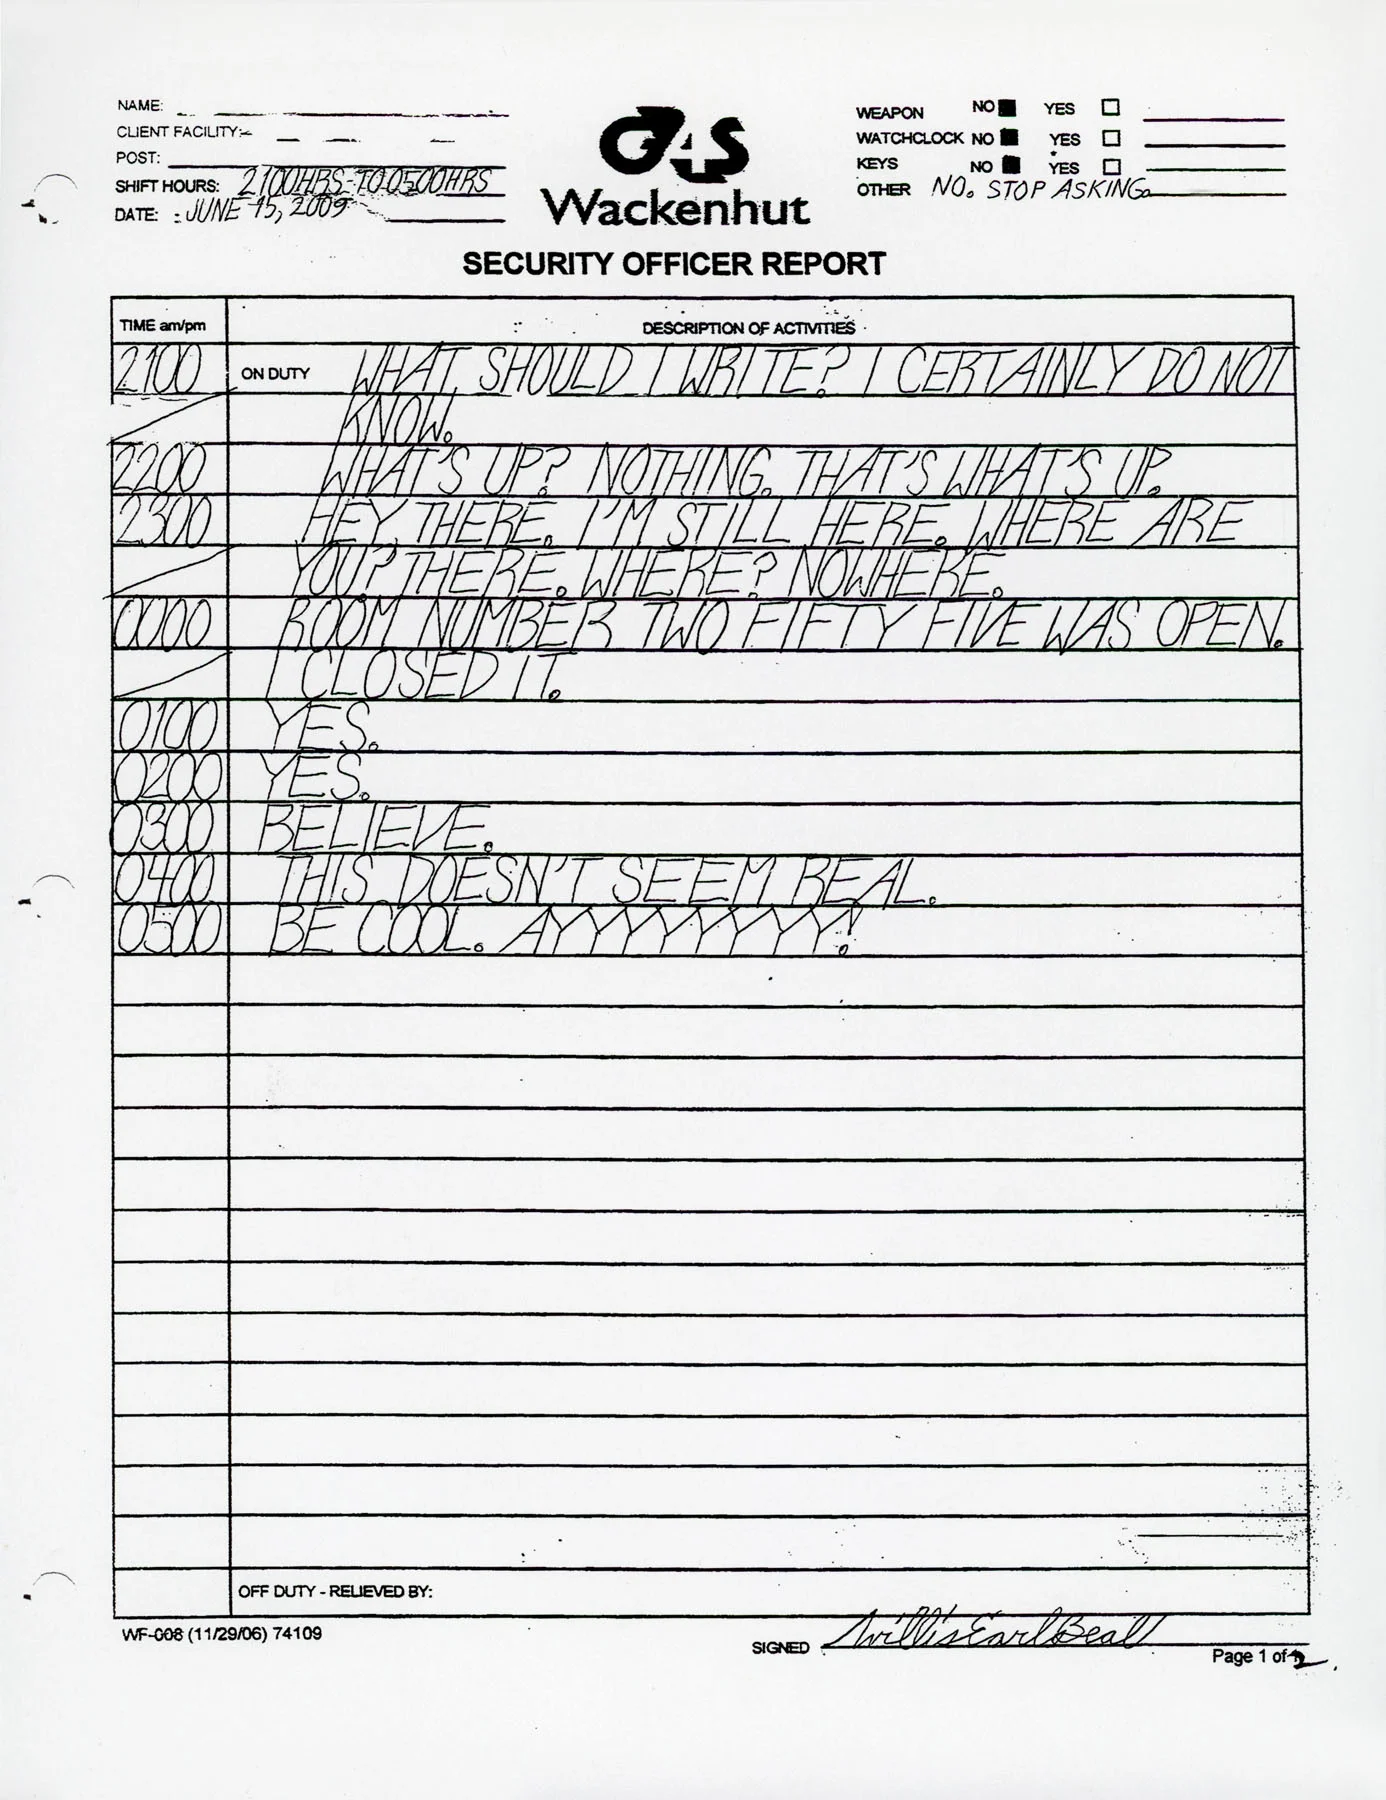 NAME:
CLIENT FACILITY:
POST:
SHIFT HOURS: 2100HRS-TO-0500HRS
DATE: JUNE 15, 2009
G4S
Wackenhut
WEAPON NO YES
WATCHCLOCK NO YES
KEYS NO YES
OTHER NO. STOP ASKING.
SECURITY OFFICER REPORT
TIME am/pm DESCRIPTION OF ACTIVITIES
2100 ON DUTY WHAT SHOULD I WRITE? I CERTAINLY DO NOT
KNOW.
2200 WHAT'S UP? NOTHING. THAT'S WHAT'S UP.
2300 HEY, THERE. I'M STILL HERE. WHERE ARE
YOU? THERE. WHERE? NOWHERE.
0000 ROOM NUMBER TWO FIFTY FIVE WAS OPEN.
I CLOSED IT.
0100 YES.
0200 YES.
0300 BELIEVE.
0400 THIS DOESN'T SEEM REAL.
0500 BE COOL. AYYYYYYYY!
OFF DUTY - RELIEVED BY:
WF-008 (11/29/06) 74109
SIGNED Willis Earl Beal
Page 1 of 2